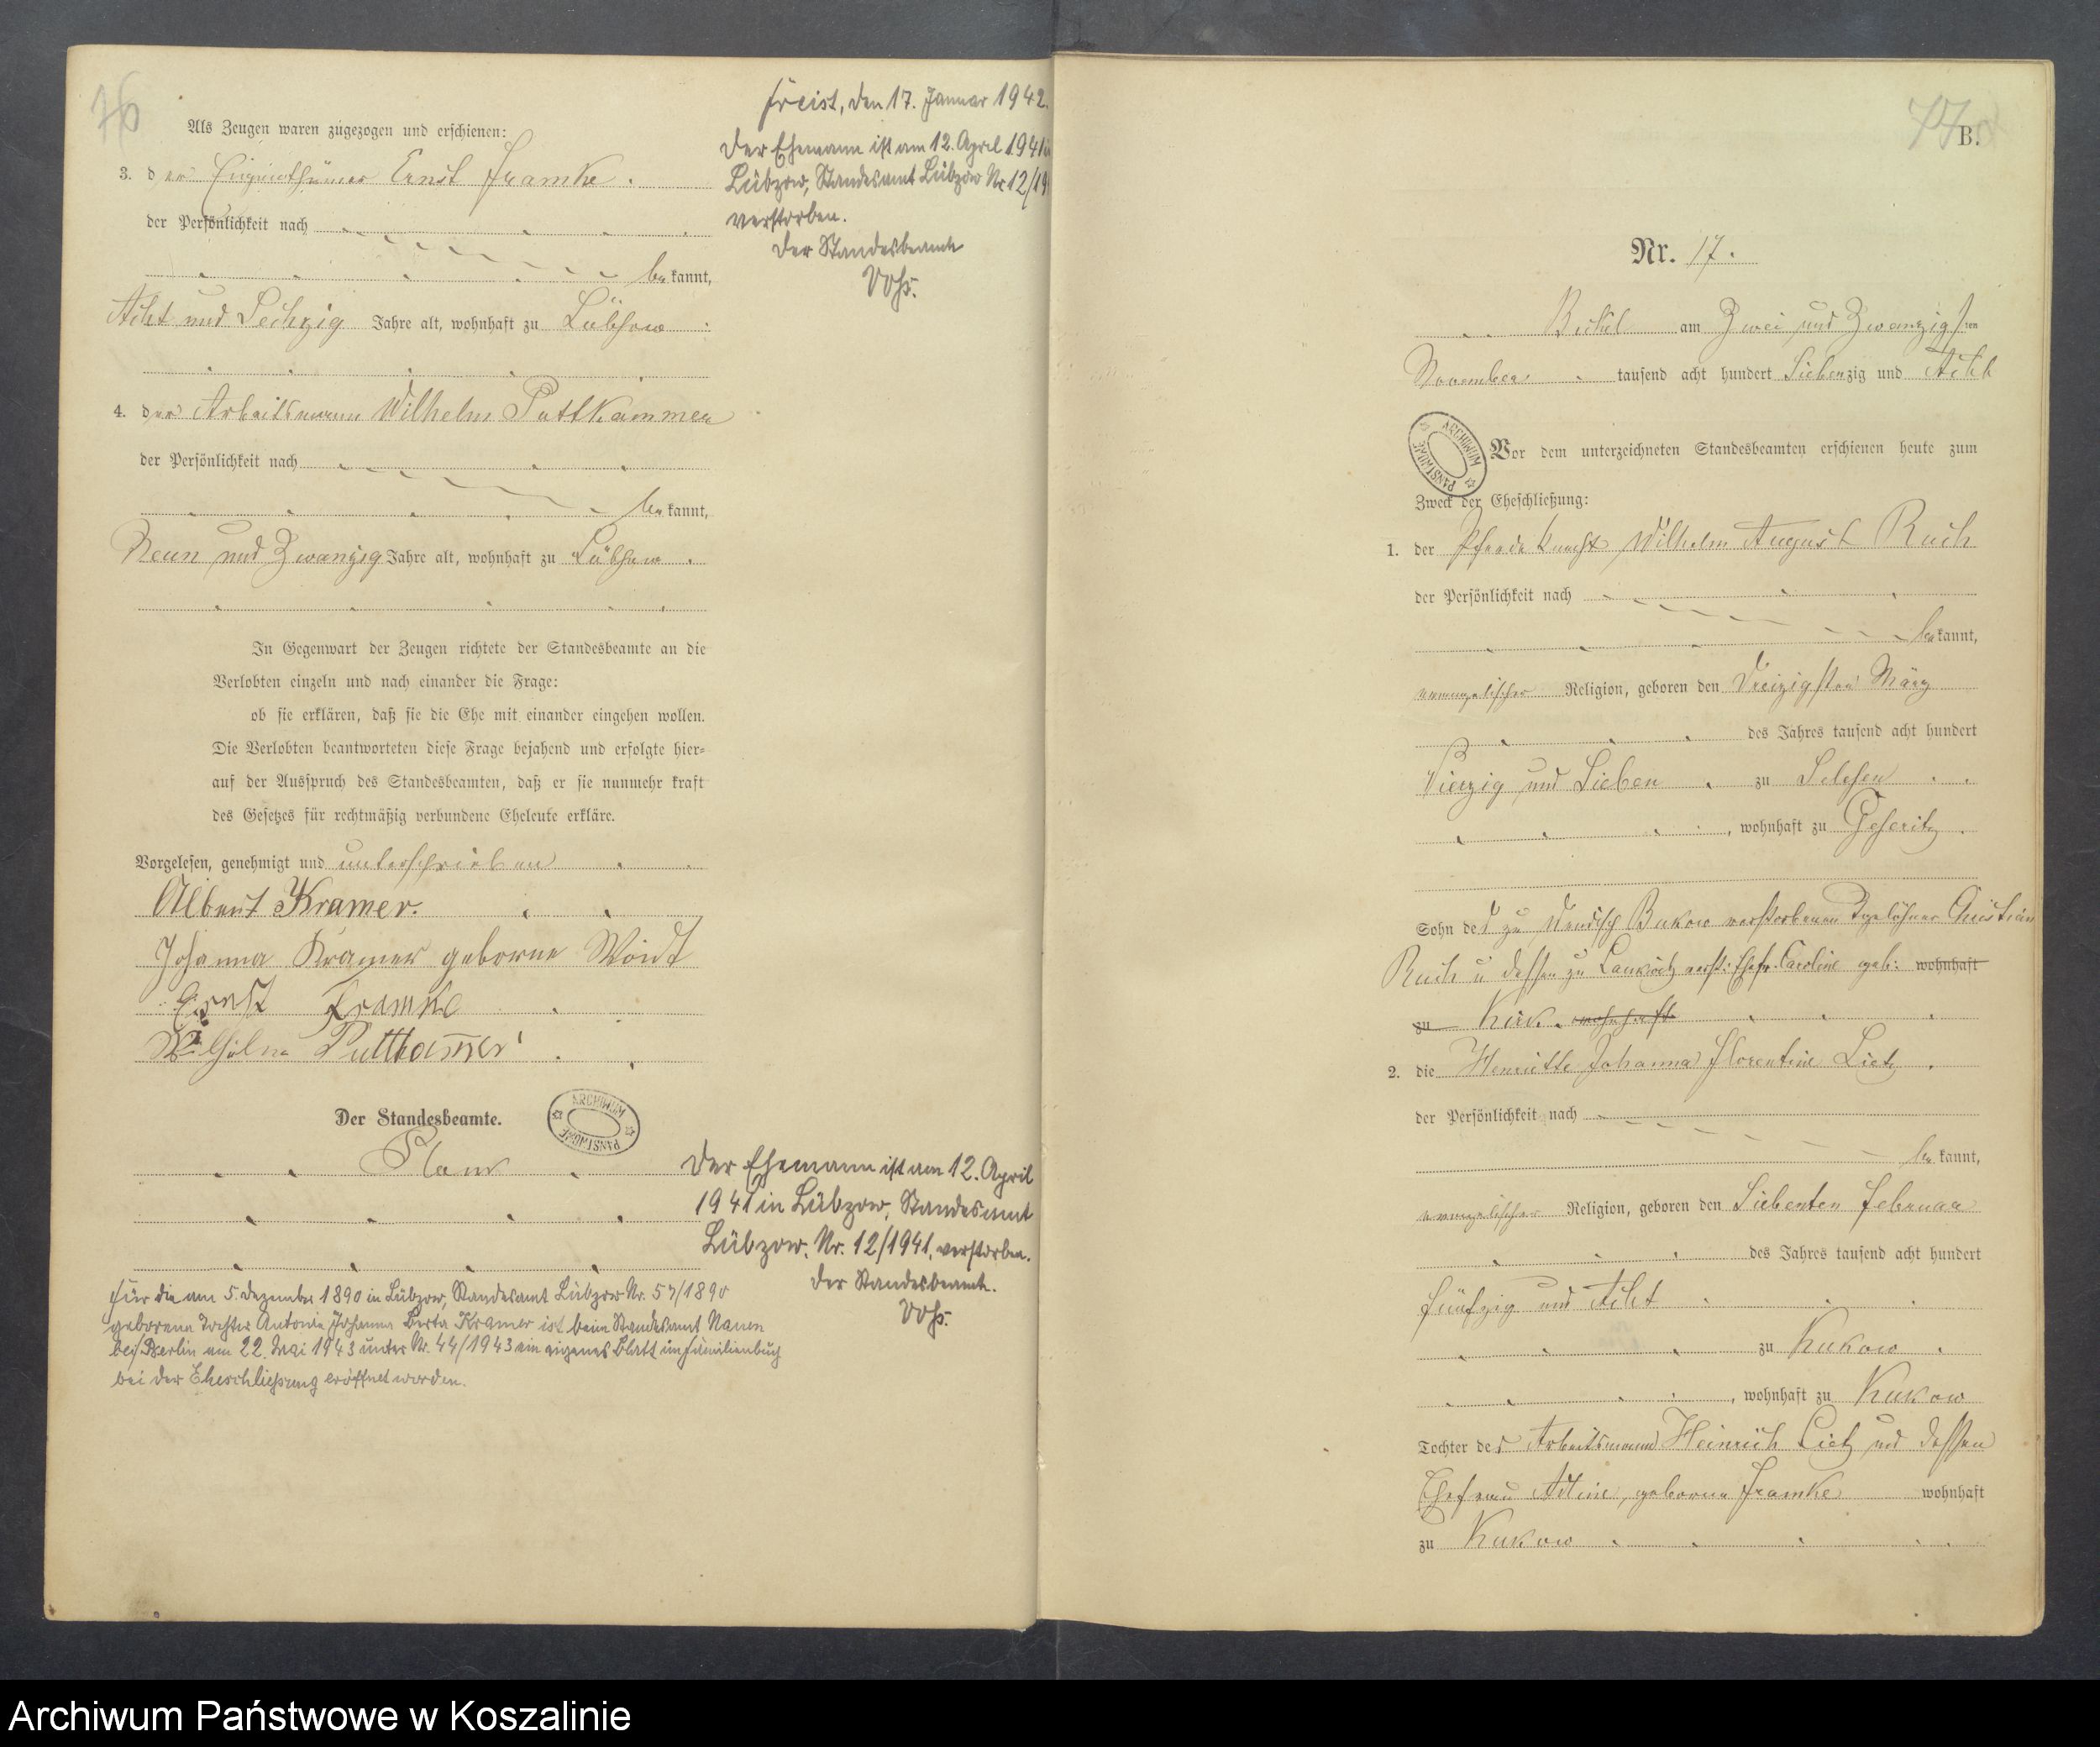 76
Als Zeugen waren zugezogen und erschienen:
3. der Eigenthümer Ernst Framke.
der Persönlichkeit nach
bekannt,
Acht und Sechzig Jahre alt, wohnhaft zu Lübsow
4. der Arbeitsmann Wilhelm Puttkammer
der Persönlichkeit nach
bekannt,
Neun und Zwanzig Jahre alt, wohnhaft zu Lübsow.
In Gegenwart der Zeugen richtete der Standesbeamte an die
Verlobten einzeln und nach einander die Frage:
ob sie erklären, daß sie die Ehe mit einander eingehen wollen.
Die Verlobten beantworteten diese Frage bejahend und erfolgte hier-
auf der Ausspruch des Standesbeamten, daß er sie nunmehr kraft
des Gesetzes für rechtmäßig verbundene Eheleute erkläre.
Vorgelesen, genehmigt und unterschrieben
Albert Kramer.
Johanna Kramer geborne Woidt
Ernst Framke
Wilhelm Puttkam̅er
Der Standesbeamte.
ARCHIWUM PAŃSTWOWE
für die am 5. Dezember 1890 in Lübzow, Standesamt Lübzow Nr. 57/1890
geborene Tochter Antonie Johanna Berta Kramer ist beim Standesamt Nauen
bei Berlin am 22. Mai 1943 unter Nr. 44/1943 ein eigenes Blatt im Familienbuch
bei der Eheschließung eröffnet worden.
Freist, den 17. Januar 1942.
Der Ehemann ist am 12. April 1941 in
Lübzow, Standesamt Lübzow Nr 12/19
verstorben.
Der Standesbeamte
Vohs.
Der Ehemann ist am 12. April
1941 in Lübzow, Standesamt
Lübzow, Nr. 12/1941, verstorben.
Der Standesbeamte.
Vohs.
77
B.
Nr. 17.
am Zwei und Zwanzigsten
November tausend acht hundert Siebenzig und Acht
ARCHIWUM PAŃSTWOWE
Vor dem unterzeichneten Standesbeamten erschienen heute zum
Zweck der Eheschließung:
1. der Pferdeknecht Wilhelm August Ruch
der Persönlichkeit nach
bekannt,
evangelischer Religion, geboren den Dreizigsten März
des Jahres tausend acht hundert
Vierzig und Sieben zu Selesen
, wohnhaft zu Gesoritz.
Sohn des zu Wendisch Bukow verstorbenen Tagelöhner Christian
Ruch u dessen zu verst: Ehefr. Caroline geb: wohnhaft
zu Kirk. wohnhaft
2. die Henriette Johanna Florentine Lietz
der Persönlichkeit nach
bekannt,
evangelischer Religion, geboren den Siebenten Februar
des Jahres tausend acht hundert
fünfzig und Acht
zu Kukow.
, wohnhaft zu Kukow
Tochter des Arbeitsmann Heinrich Lietz und dessen
Ehefrau geborne Framke wohnhaft
zu Kukow
Archiwum Państwowe w Koszalinie